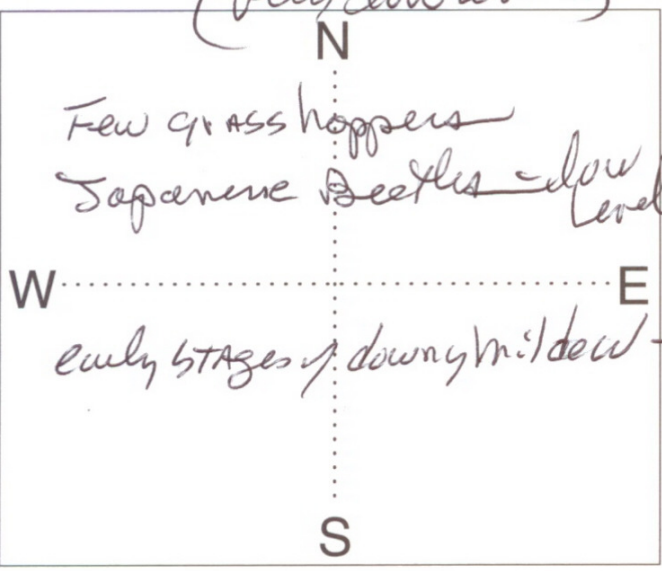 N
Few grasshoppers
Japanese Beetles - low
Level
W E
early stages of downy mildew -
S